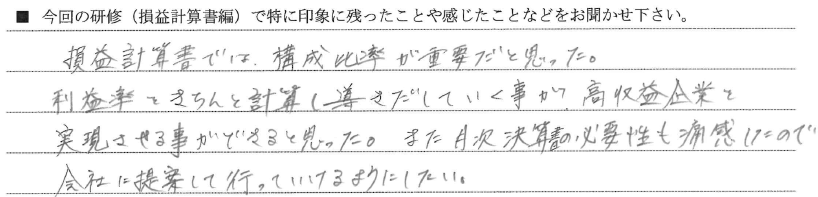 ■ 今回の研修（損益計算書編）で特に印象に残ったことや感じたことなどをお聞かせ下さい。
損益計算書では、構成比率が重要だと思った。
利益率をきちんと計算し導きだしていく事が、高収益企業を
実現させる事ができると思った。また月次決算書の必要性も痛感したので
会社に提案して行っていけるようにしたい。